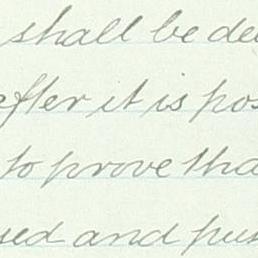 shall be de
after it is pos
to prove tha
sed and pus